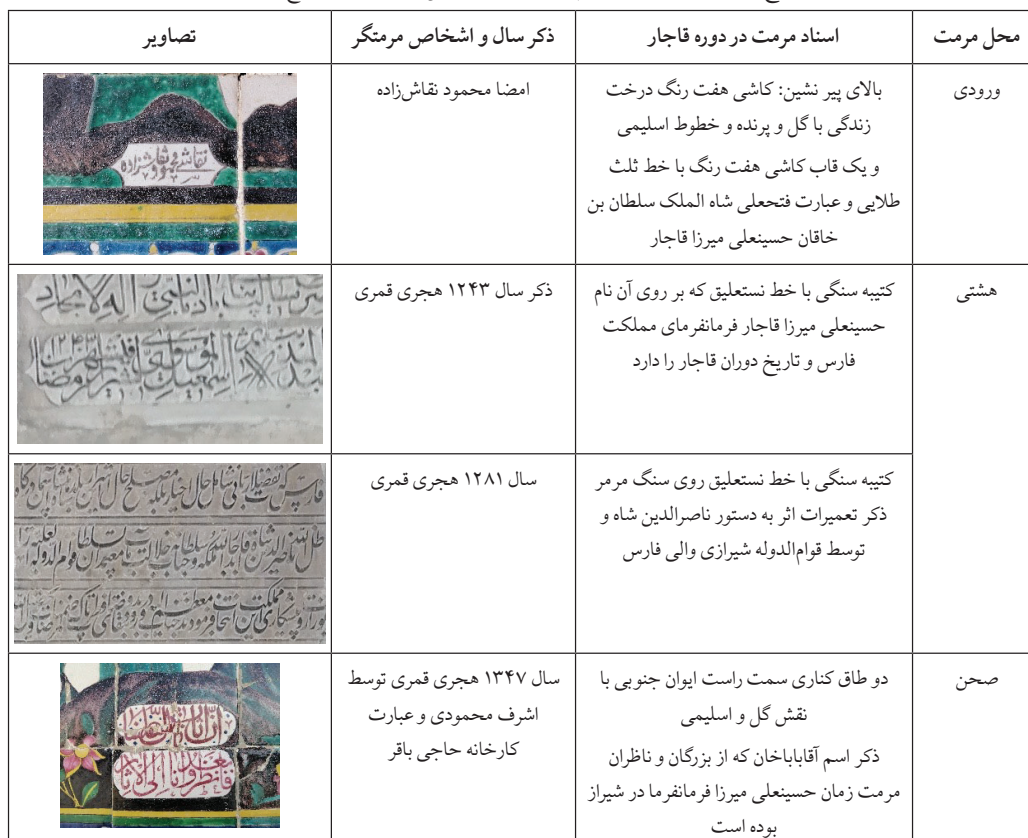 محل مرمت
اسناد مرمت در دوره قاجار
ذکر سال و اشخاص مرمتگر
تصاویر
ورودی
بالای پیر نشین: کاشی هفت رنگ درخت
زندگی با گل و پرنده و خطوط اسلیمی
و یک قاب کاشی هفت رنگ با خط ثلث
طلایی و عبارت فتحعلی شاه الملک سلطان بن
خاقان حسینعلی میرزا قاجار
امضا محمود نقاش‌زاده
نقاشی محمود نقاشزاده
هشتی
کتیبه سنگی با خط نستعلیق که بر روی آن نام
حسینعلی میرزا قاجار فرمانفرمای مملکت
فارس و تاریخ دوران قاجار را دارد
ذکر سال ۱۲۴۳ هجری قمری
کتیبه سنگی با خط نستعلیق روی سنگ مرمر
ذکر تعمیرات اثر به دستور ناصرالدین شاه و
توسط قوام‌الدوله شیرازی والی فارس
سال ۱۲۸۱ هجری قمری
صحن
دو طاق کناری سمت راست ایوان جنوبی با
نقش گل و اسلیمی
ذکر اسم آقاباباخان که از بزرگان و ناظران
مرمت زمان حسینعلی میرزا فرمانفرما در شیراز
بوده است
سال ۱۳۴۷ هجری قمری توسط
اشرف محمودی و عبارت
کارخانه حاجی باقر